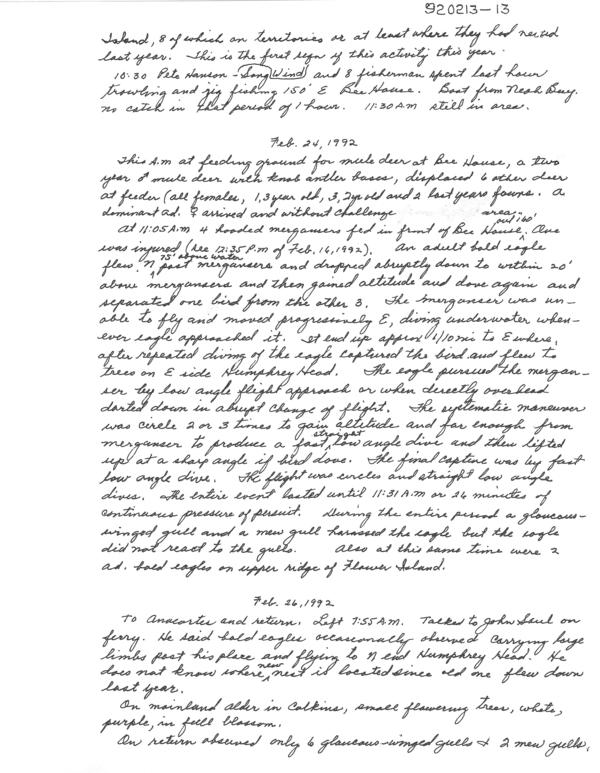 920213-13
Island, 8 of which on territories or at least where they had nested
last year. This is the first sign of this activity this year.
10:30 Pete Hanson - Song Wind and 8 fisherman spent last hour
trowling and jig fishing 150' E Bee House. Boat from Neah Bay.
no catch in that period of 1 hour. 11:30 AM still in area.
Feb. 24, 1992
This A.m at feeding ground for mule deer at Bee House, a two
year ♂ mule deer with knob antler bases, displaced 6 other deer
at feeder (all females, 1, 3 year old, 3, 2 yr old and 2 last years fawns. A
dominant ad. ♀ arrived and without challenge area.
At 11:05 A.m 4 hooded mergansers fed in front of Bee House, out 60' One
was injured (see 12:35 P.m of Feb. 16, 1992). An adult bald eagle
flew N 75' above water past mergansers and dropped abruptly down to within 20'
above mergansers and then gained altitude and dove again and
separated one bird from the other 3. The merganser was un-
able to fly and moved progressively E, diving underwater when-
ever eagle approached it. It end up approx 1/10 mi to E where,
after repeated diving of the eagle captured the bird and flew to
trees on E side Humphrey Head. The eagle pursued the mergan-
ser by low angle flight approach or when directly overhead
darted down in abrupt change of flight. The systematic maneuver
was circle 2 or 3 times to gain altitude and far enough from
merganser to produce a fast, straight low angle dive and then lifted
up at a sharp angle if bird dove. The final capture was by fast
low angle dive. The flight was circles and straight low angle
dives. The entire event lasted until 11:31 A.m or 26 minutes of
continuous pressure of persuit. During the entire period a glaucous-
winged gull and a mew gull harassed the eagle but the eagle
did not react to the gulls. Also at this same time were 2
ad. bald eagles on upper ridge of Flower Island.
Feb. 26, 1992
To Anacortes and return. Left 7:55 A.M. Talked to John Saul on
ferry. He said bald eagles occasionally observed carrying large
limbs past his place and flying to N end Humphrey Head. He
does not know where new nest is located since old one flew down
last year.
On mainland alder in catkins, small flowering trees, white,
purple, in full blossom.
On return observed only 6 glaucous-winged gulls & 2 mew gulls,